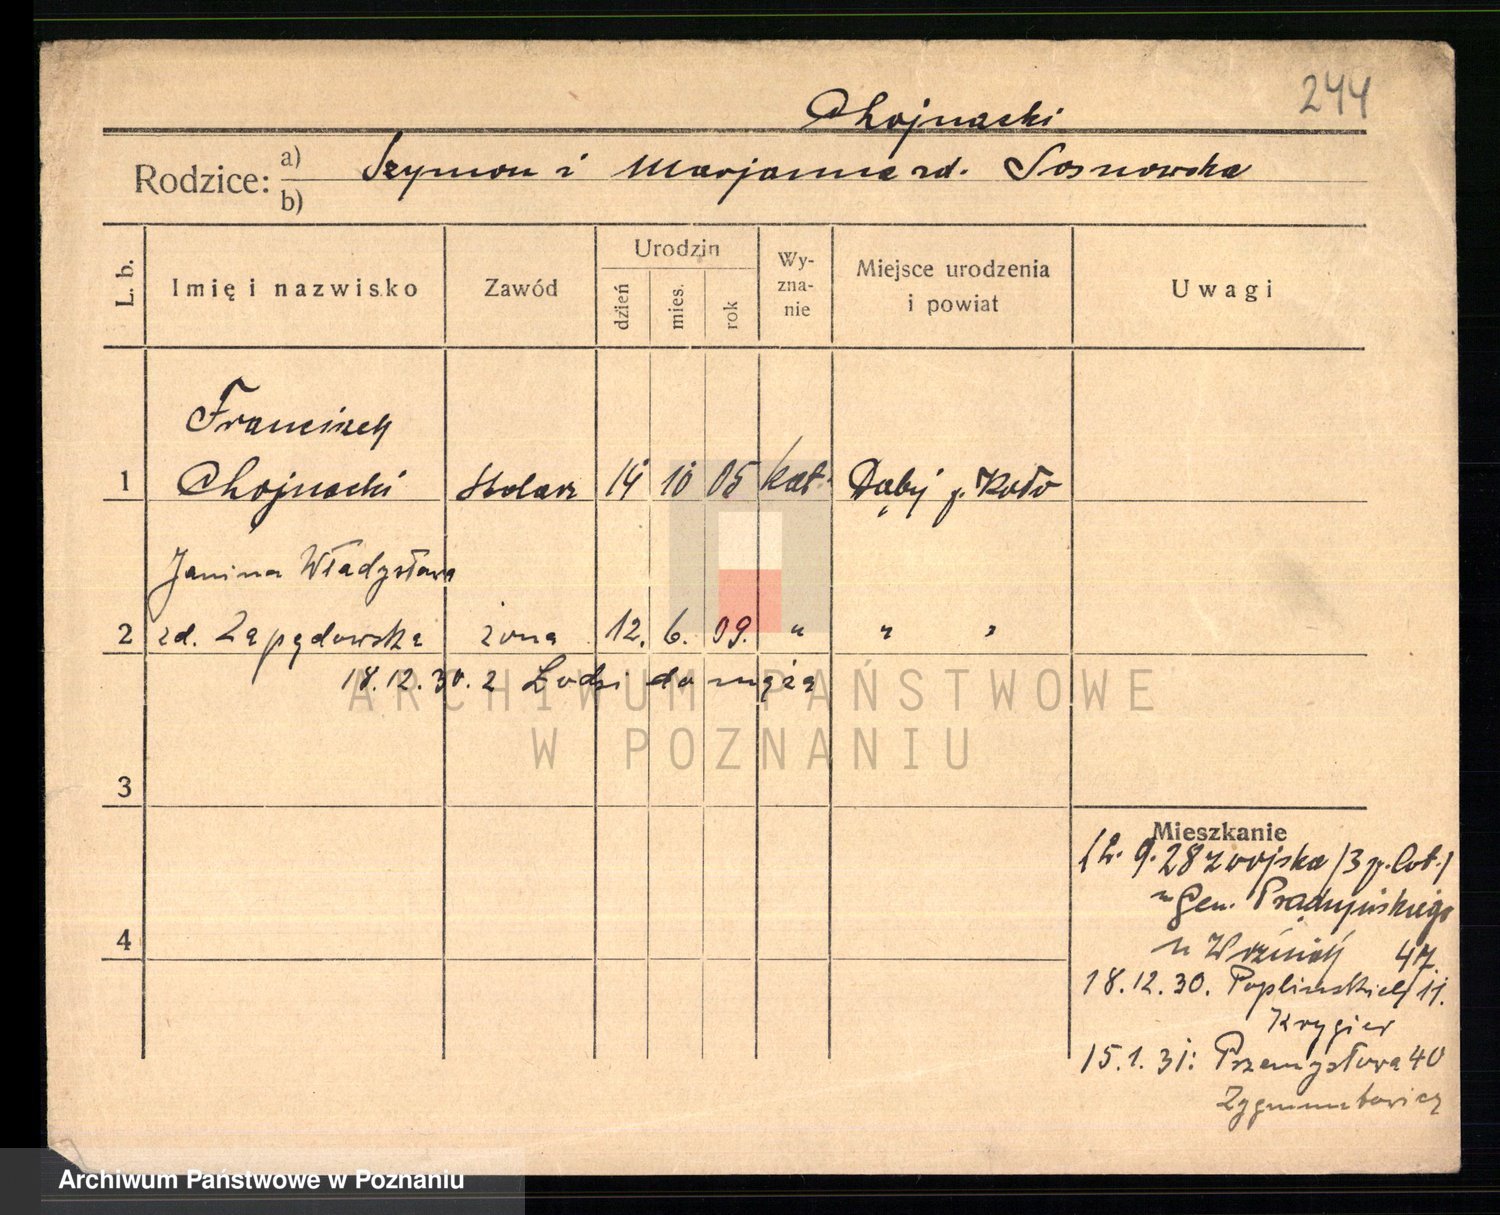 244
Chojnacki
Rodzice: a) b) Szymon i Marjanna zd. Sosnowska
L. b. Imię i nazwisko Zawód Urodzin dzień mies. rok Wy-zna-nie Miejsce urodzenia i powiat Uwagi
Franciszek
1 Chojnacki stolarz 14 10 05 kat. Dąbij p. Koło
Janina Władysława
2 zd. Zapędowska żona 12. 6. 09. " " "
18.12.30. z Łodzi do męża
ARCHIWUM PAŃSTWOWE
W POZNANIU
3
Mieszkanie
9. 28 z wojska /3 p. lot./
Gen. Prądzyńskiego
4
u 47.
18.12.30. Poplińskich 11.
Krygier
15.1.31: Przemysłowa 40
Zygmuntowicz
Archiwum Państwowe w Poznaniu